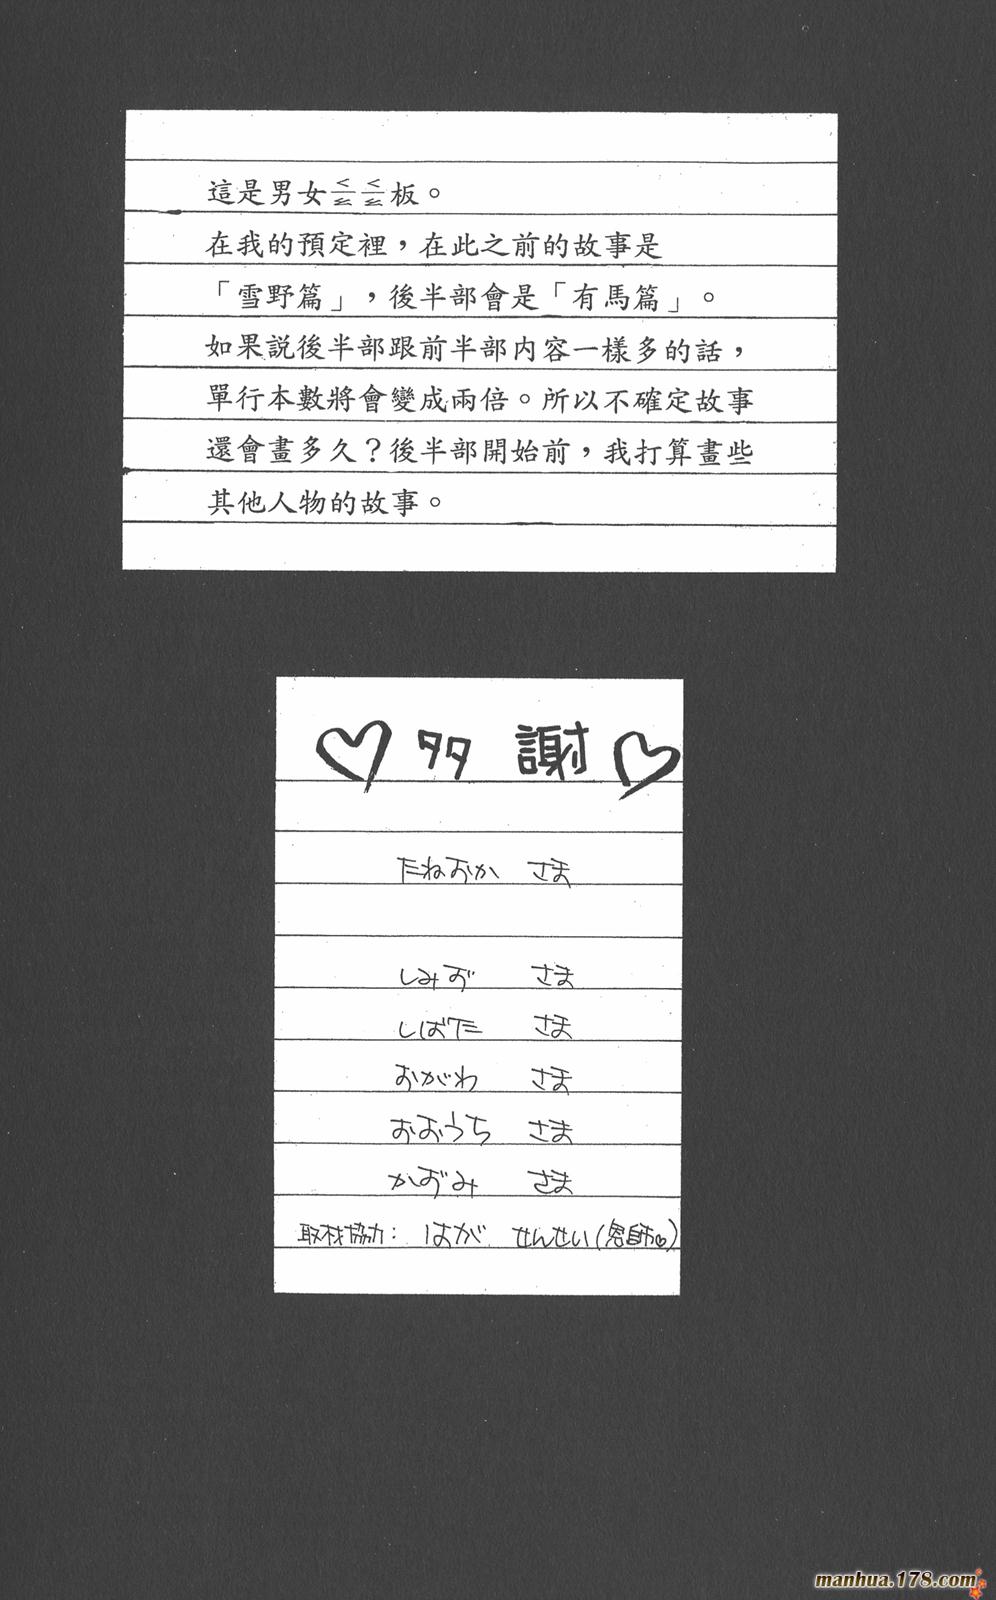 這是男女ㄑㄠㄑㄠ板。
在我的預定裡，在此之前的故事是
「雪野篇」，後半部會是「有馬篇」。
如果説後半部跟前半部内容一樣多的話，
單行本數將會變成兩倍。所以不確定故事
還會畫多久？後半部開始前，我打算畫些
其他人物的故事。
♡多謝♡
たねおか さま
しみず さま
しばた さま
おがわ さま
おおうち さま
かずみ さま
取材協力： はが せんせい(恩師♡)
manhua.178.com